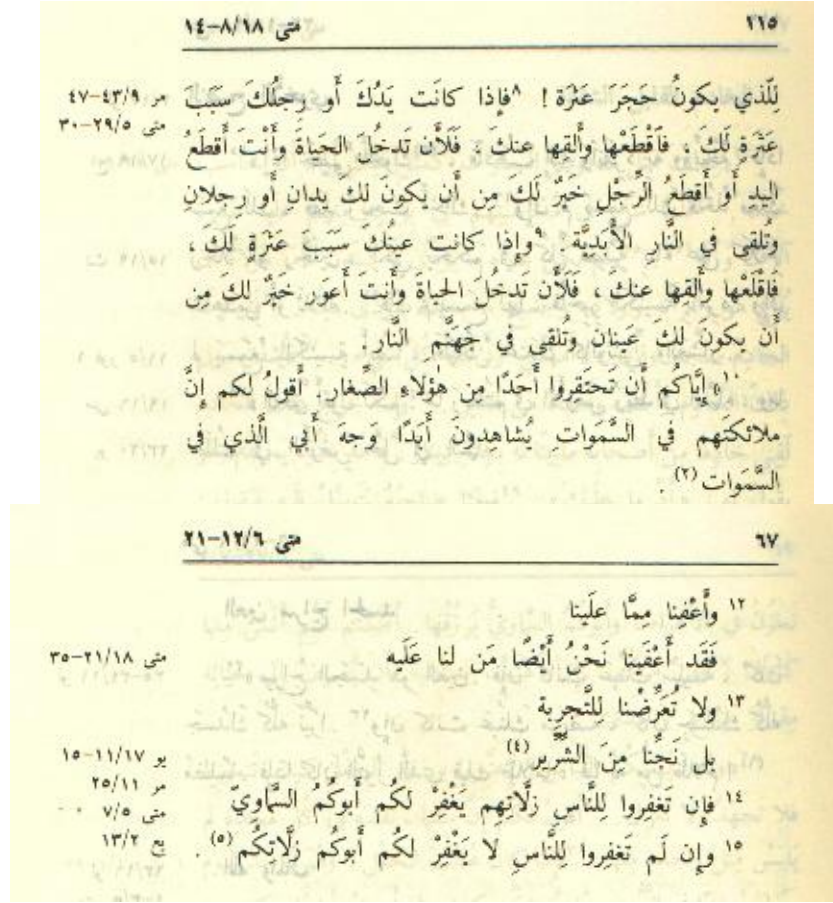 ٢١٥ متى ١٨/‏٨-١٤
لِلَّذي يكونُ حَجَرَ عَثْرَة ! ٨فإِذا كانَت يَدُكَ أَو رِجلُكَ سَبَبَ مر ٩/‏٤٣-٤٧
عَثْرَةٍ لَكَ ، فَاقْطَعْها وأَلقِها عنكَ ، فَلَأَن تَدخُلَ الحَياةَ وأَنْتَ أَقطَعُ متى ٥/‏٢٩-٣٠
اليدِ أَو أَقطَعُ الرِّجْلِ خَيرٌ لَكَ مِن أَن يكونَ لكَ يدانِ أَو رِجلانِ
وتُلقى في النَّارِ الأَبديَّة . ٩وإِذا كانت عينُكَ سَبَبَ عَثْرَةٍ لَكَ ،
فَاقْلَعْها وأَلقِها عنكَ ، فَلَأَن تَدخُلَ الحياةَ وأَنتَ أَعوَر خَيرٌ لكَ مِن
أَن يكونَ لكَ عَينان وتُلقى في جَهَنَّمِ النَّار .
١٠« إِيَّاكُم أَن تَحتَقِروا أَحَدًا مِن هٰؤلاءِ الصِّغار . أَقولُ لكم إِنَّ
ملائكتَهم في السَّمَواتِ يُشاهِدونَ أَبَدًا وَجهَ أَبي الَّذي في
السَّمَوات (٢) .
٦٧ متى ٦/‏١٢-٢١
١٢ وأَعْفِنا مِمَّا علَينا
فَقَد أَعْفَينا نَحْنُ أَيْضًا مَن لنا عَلَيه متى ١٨/‏٢١-٣٥
١٣ ولا تُعَرِّضْنا لِلتَّجرِبة
بل نَجِّنا مِنَ الشِّرِّير(٤) يو ١٧/‏١١-١٥
مر ١١/‏٢٥
١٤ فإِن تَغفِروا لِلنَّاسِ زلَّاتِهِم يَغْفِرْ لكم أَبوكُمُ السَّماوِيّ متى ٥/‏٧
١٥ وإِن لَم تَغفِروا لِلنَّاسِ لا يَغْفِرْ لكُم أَبوكُم زلَّاتِكُم(٥) . يع ٢/‏١٣